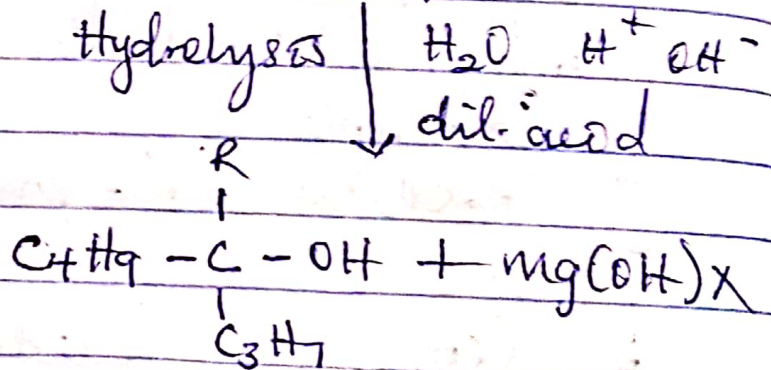 Hydrolysis H₂O H⁺ OH⁻
dil. acid
R
C4H9 - C - OH + mg(OH)X
C3H7